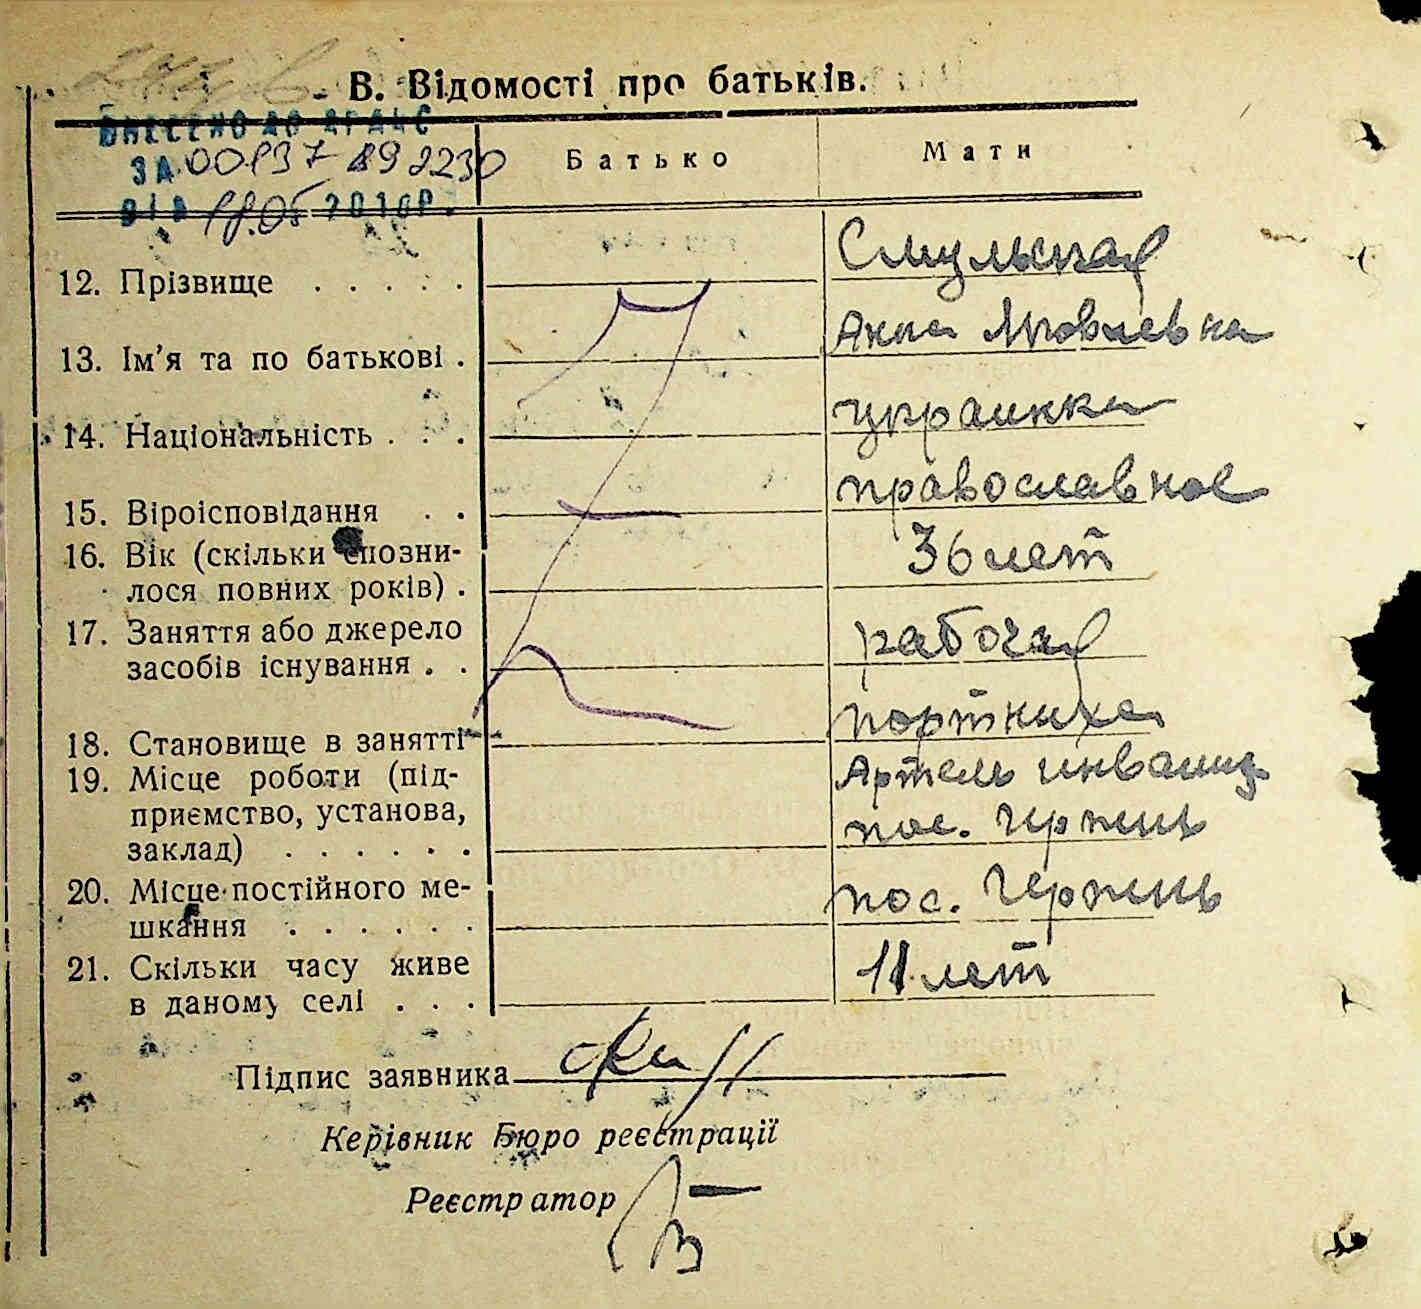 В. Відомості про батьків.
ВНЕСЕНО ДО ДРАЦС
ЗА 00137 892230
ВІД 18.05 2010Р.
Батько Мати
12. Прізвище . . . . .
13. Ім'я та по батькові . Анна Яковлевна
14. Національність . . . украинка
15. Віроісповідання . . православное
16. Вік (скільки споzни- 36 лет
лося повних років) .
17. Заняття або джерело рабочая
засобів існування . .
18. Становище в занятті портниха
19. Місце роботи (під- Артель инвалид
приємство, установа, пос. Ирпень
заклад) . . . . . .
20. Місце постійного ме- пос. Ирпень
шкання . . . . . .
21. Скільки часу живе 11 лет
в даному селі . . .
Підпис заявника
Керівник Бюро реєстрації
Реєстратор